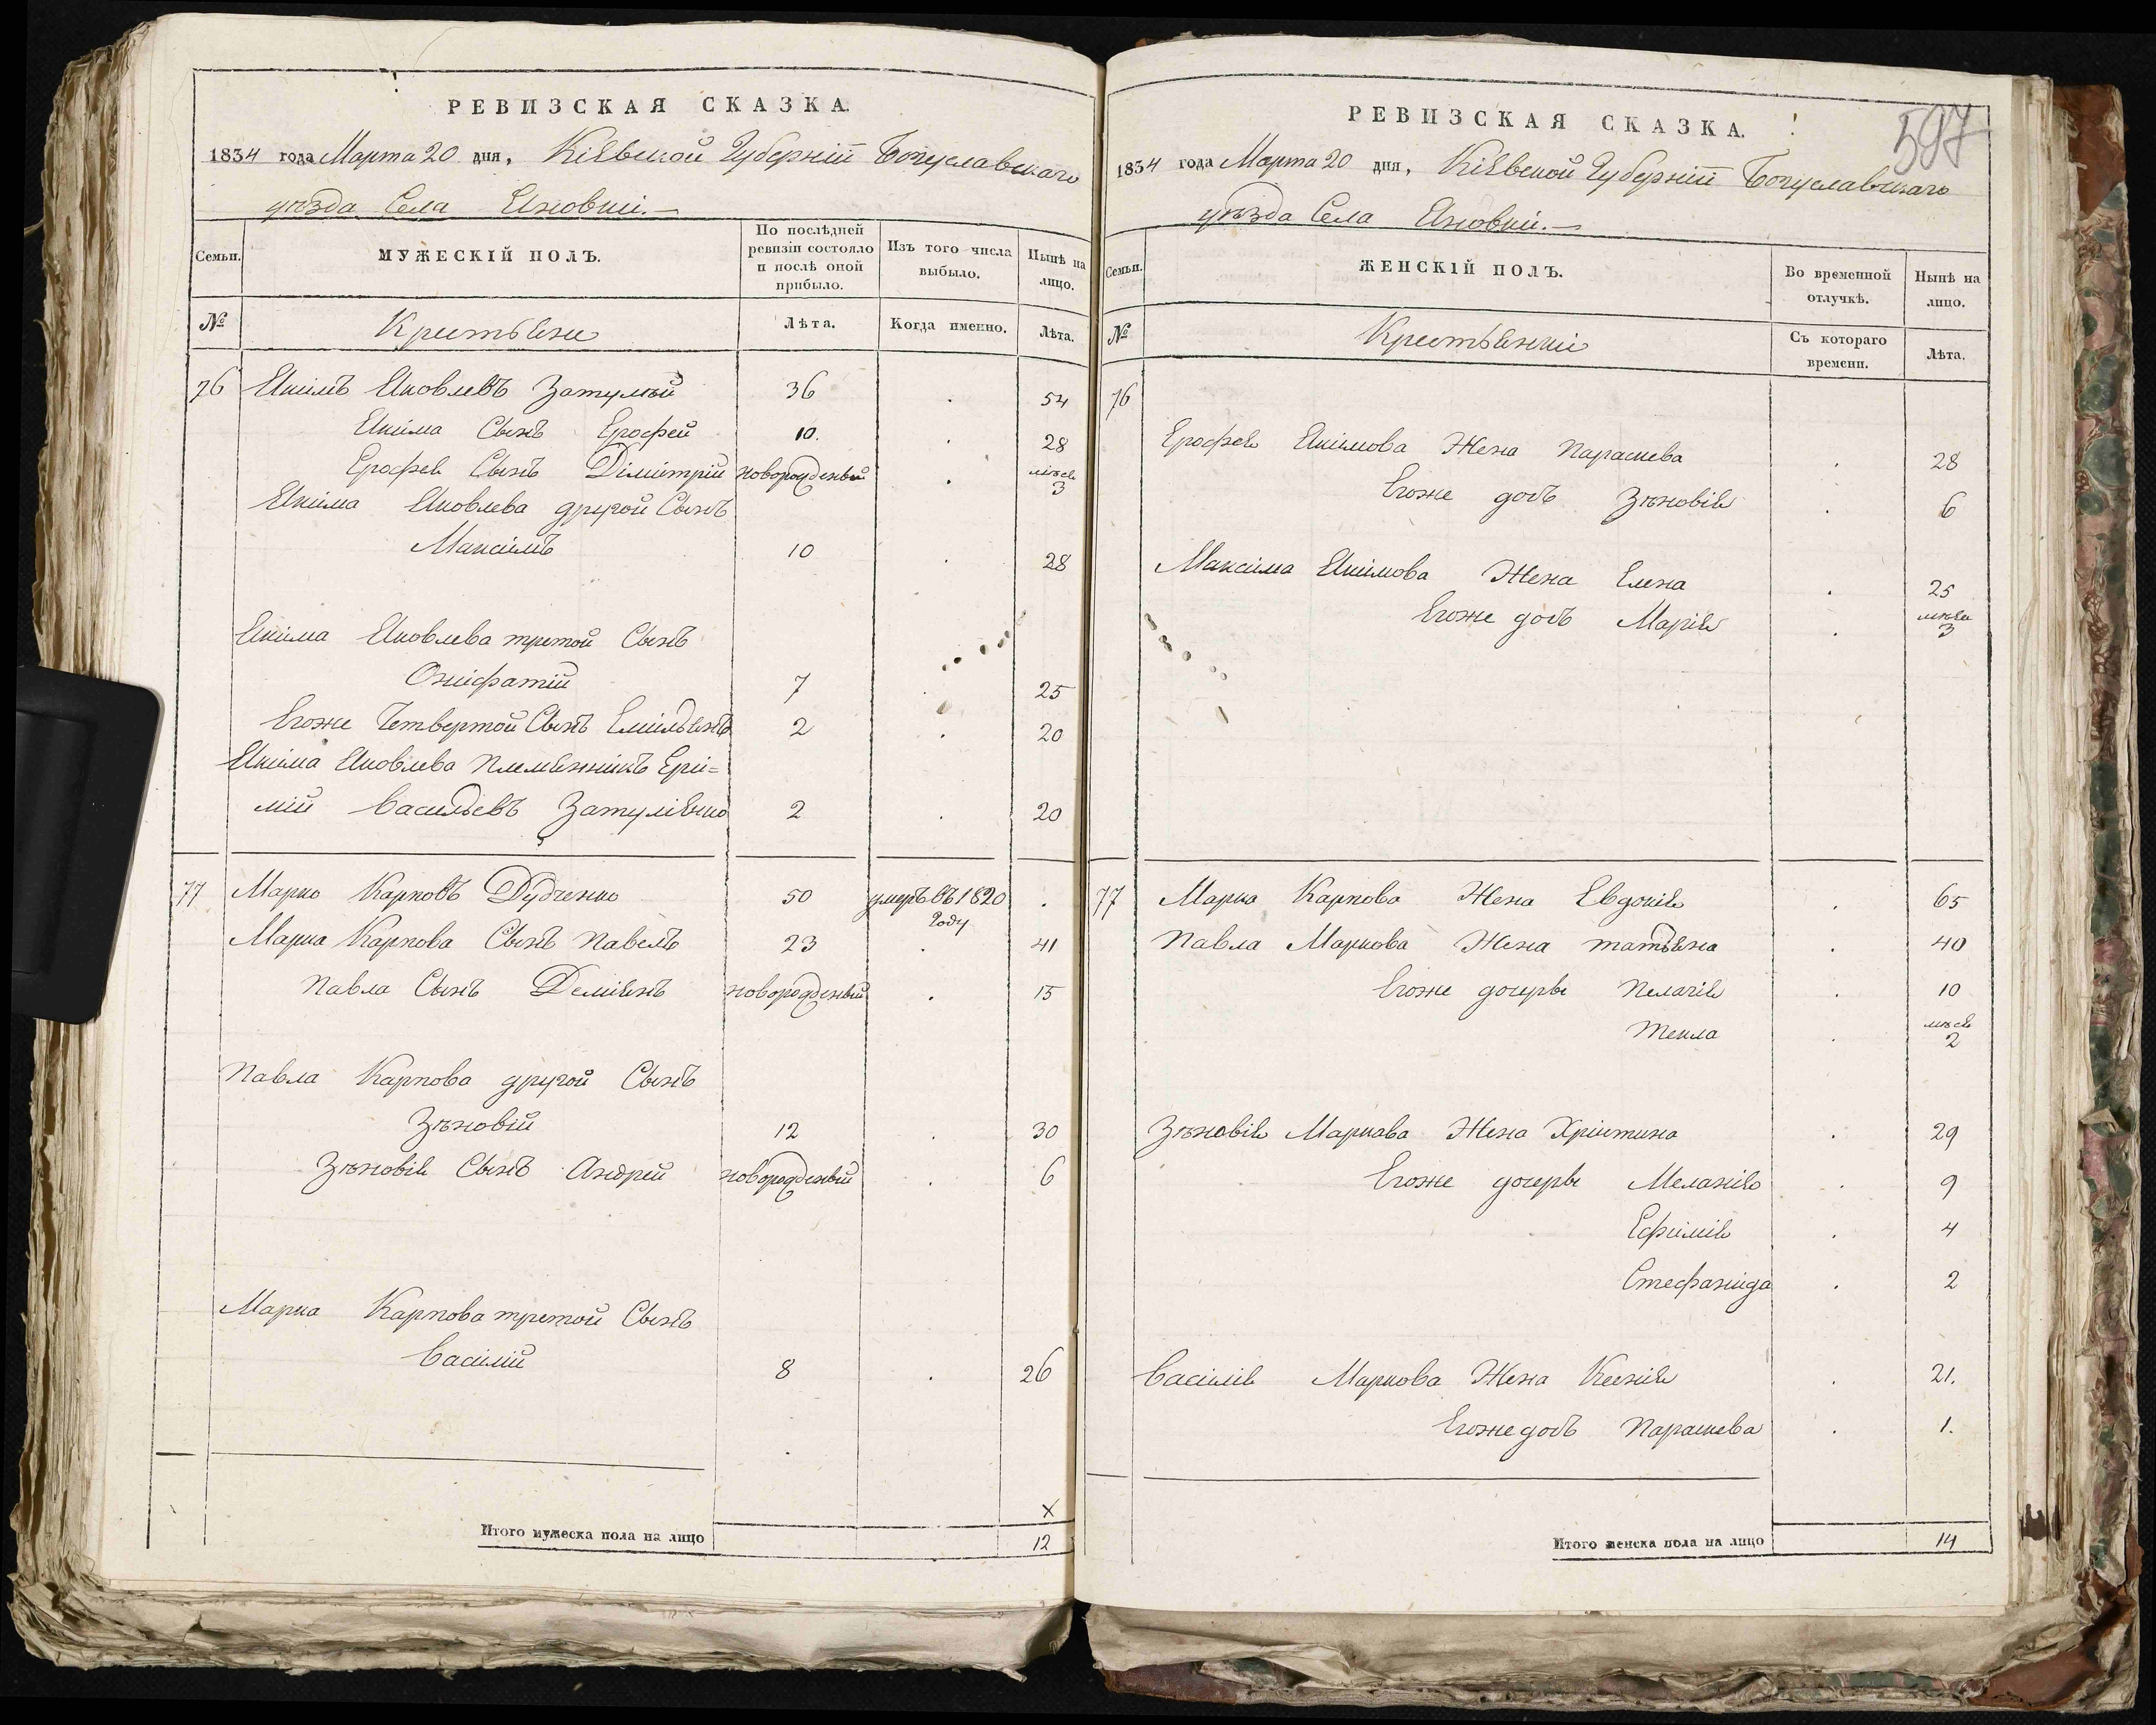 РЕВИЗСКАЯ СКАЗКА.
1834 года Марта 20 дня, Кіевской Губерніи Богуславскаго
уѣзда Села Яновки.—
Семьи.
МУЖЕСКІЙ ПОЛЪ.
По послѣдней ревизіи состояло и послѣ оной прибыло.
Изъ того числа выбыло.
Нынѣ на лицо.
№
Крестьяне
Лѣта.
Когда именно.
Лѣта.
76 Якимъ Яковлевъ Затулый 36 . 54
Якима Сынъ Ерофей 10. . 28
Ерофея Сынъ Дімитрій новорожденный . мѣся 3
Якима Яковлева другой Сынъ
Максимъ 10 . 28
Якима Яковлева третой Сынъ
Онифатій 7 . 25
Егоже Четвертой Сынъ Емильянъ 2 . 20
Якима Яковлева Племянникъ Ери=
мій Васильевъ Затулівко 2 . 20
77 Марко Карповъ Дудченко 50 умеръ въ 1820 году .
Марка Карпова Сынъ Павелъ 23 . 41
Павла Сынъ Деміянъ новорожденный . 15
Павла Карпова другой Сынъ
Зѣновій 12 . 30
Зѣновія Сынъ Андрей новорожденный . 6
Марка Карпова третой Сынъ
Василій 8 . 26
×
Итого мужеска пола на лицо 12
597
РЕВИЗСКАЯ СКАЗКА.
1834 года Марта 20 дня, Кіевской Губерніи Богуславскаго
уѣзда Села Яновки.—
Семьи.
ЖЕНСКІЙ ПОЛЪ.
Во временной отлучкѣ.
Нынѣ на лицо.
№
Крестьянки
Съ котораго времени.
Лѣта.
76
Ерофея Якимова Жена Параскева . 28
Егоже дочь Зѣновія . 6
Максима Якимова Жена Елена . 25
Егоже дочь Марія . мѣся 3
77 Марка Карпова Жена Евдокія . 65
Павла Маркова Жена Татьяна . 40
Егоже дочеры Пелагія . 10
Текла . мѣся 2
Зѣновія Маркова Жена Хрістина . 29
Егоже дочеры Меланія . 9
Ефимія . 4
Стефанида . 2
Василія Маркова Жена Ксенія . 21.
Егоже дочь Параскева . 1.
Итого женска пола на лицо 14